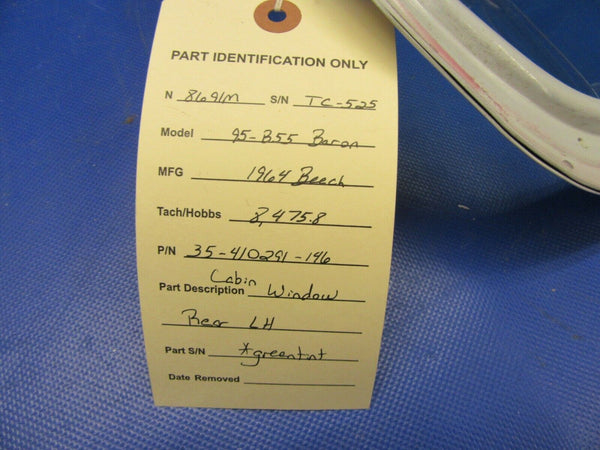 PART IDENTIFICATION ONLY
N 8691M S/N TC-525
Model 95-B55 Baron
MFG 1964 Beech
Tach/Hobbs 8,475.8
P/N 35-410291-146
Cabin
Part Description Window
Rear LH
Part S/N *greentint
Date Removed